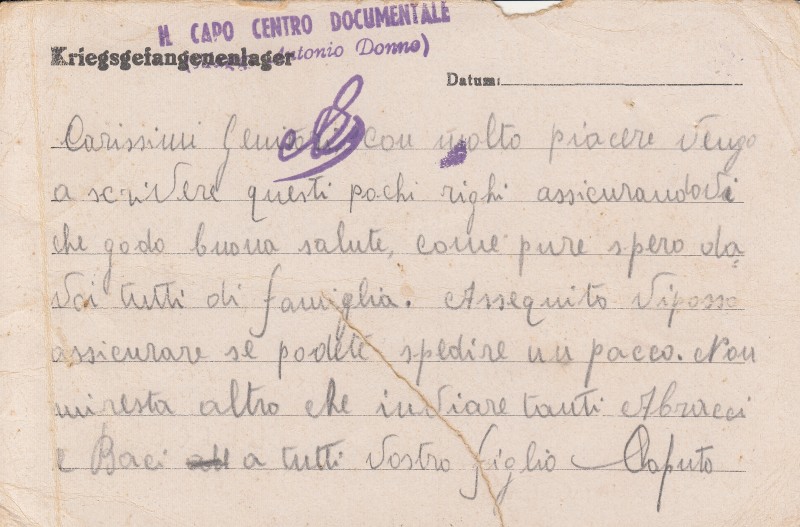 IL CAPO CENTRO DOCUMENTALE
Antonio Donno)
Kriegsgefangenenlager
Datum:
Carissimi Genitori con molto piacere vengo
a scrivere questi pochi righi assicurandovi
che godo buona salute, come pure spero da=
voi tutti di famiglia. Asseguito viposso
assicurare se podete spedire un pacco. Non
mi resta altro che inviare tanti Abracci
e Baci a tutti vostro figlio Caputo